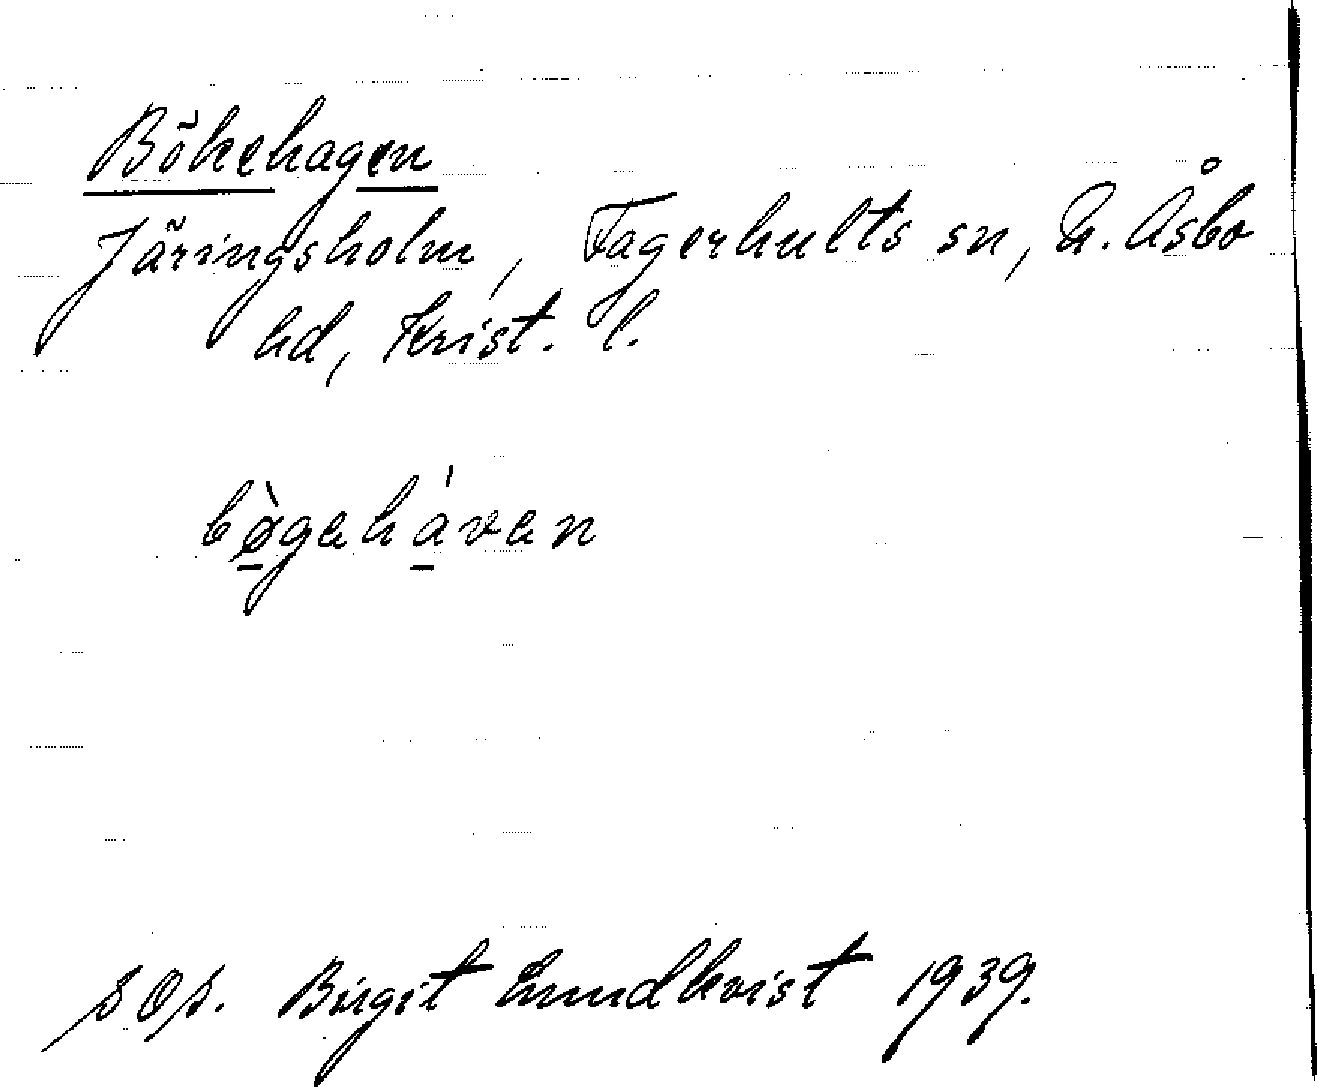 Bökehagen
Järingsholm, Fagerhults sn, N. Åsbo
hd, Krist. l.
bø̀geháven
SOÅ. Birgit Lundkvist 1939.